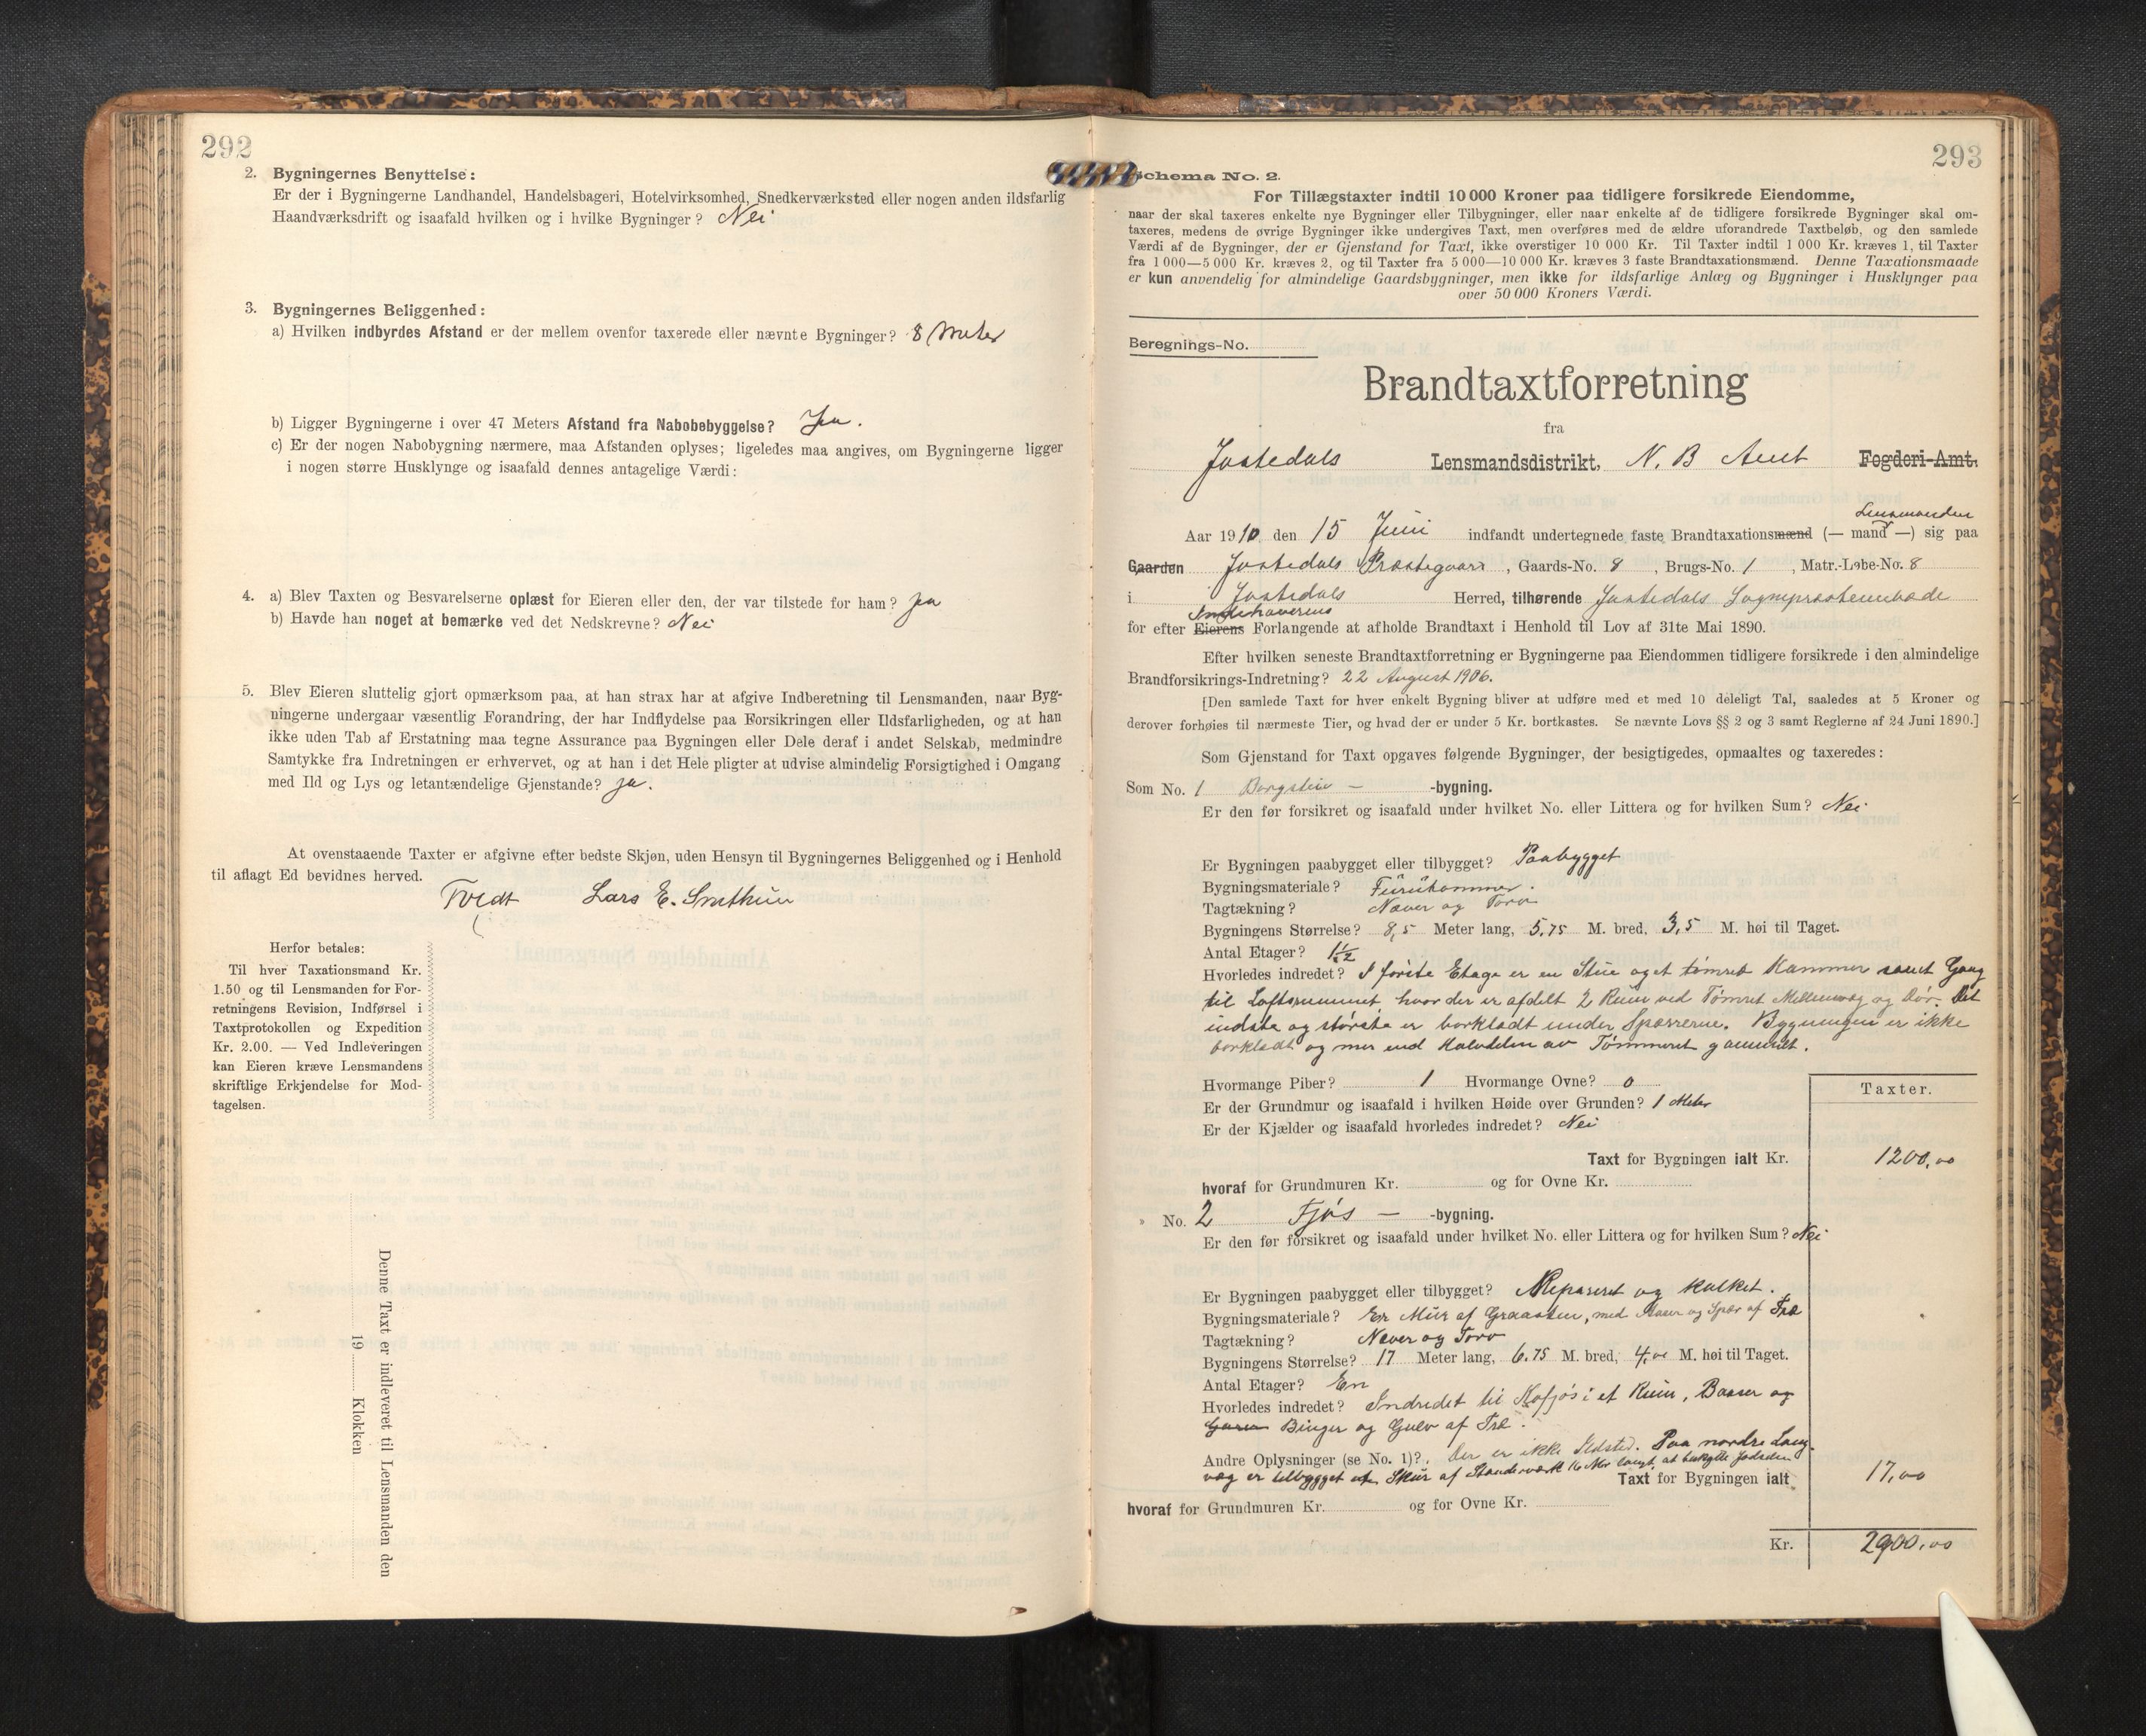 292
2. Bygningernes Benyttelse:
Er der i Bygningerne Landhandel, Handelsbageri, Hotelvirksomhed, Snedkerværksted eller nogen anden ildsfarlig
Haandværksdrift og isaafald hvilken og i hvilke Bygninger? Nei
3. Bygningernes Beliggenhed:
a) Hvilken indbyrdes Afstand er der mellem ovenfor taxerede eller nævnte Bygninger? 8 Meter
b) Ligger Bygningerne i over 47 Meters Afstand fra Nabobebyggelse? Ja.
c) Er der nogen Nabobygning nærmere, maa Afstanden oplyses; ligeledes maa angives, om Bygningerne ligger
i nogen større Husklynge og isaafald dennes antagelige Værdi:
4. a) Blev Taxten og Besvarelserne oplæst for Eieren eller den, der var tilstede for ham? Ja
b) Havde han noget at bemærke ved det Nedskrevne? Nei
5. Blev Eieren sluttelig gjort opmærksom paa, at han strax har at afgive Indberetning til Lensmanden, naar Byg-
ningerne undergaar væsentlig Forandring, der har Indflydelse paa Forsikringen eller Ildsfarligheden, og at han
ikke uden Tab af Erstatning maa tegne Assurance paa Bygningen eller Dele deraf i andet Selskab, medmindre
Samtykke fra Indretningen er erhvervet, og at han i det Hele pligter at udvise almindelig Forsigtighed i Omgang
med Ild og Lys og letantændelige Gjenstande? Ja.
At ovenstaaende Taxter er afgivne efter bedste Skjøn, uden Hensyn til Bygningernes Beliggenhed og i Henhold
til aflagt Ed bevidnes herved.
Tvedt Lars E. Snethun
Herfor betales:
Til hver Taxationsmand Kr.
1.50 og til Lensmanden for For-
retningens Revision, Indførsel i
Taxtprotokollen og Expedition
Kr. 2.00. — Ved Indleveringen
kan Eieren kræve Lensmandens
skriftlige Erkjendelse for Mod-
tagelsen.
Denne Taxt er indleveret til Lensmanden den
19 Klokken
293
Schema No. 2.
For Tillægstaxter indtil 10 000 Kroner paa tidligere forsikrede Eiendomme,
naar der skal taxeres enkelte nye Bygninger eller Tilbygninger, eller naar enkelte af de tidligere forsikrede Bygninger skal om-
taxeres, medens de øvrige Bygninger ikke undergives Taxt, men overføres med de ældre uforandrede Taxtbeløb, og den samlede
Værdi af de Bygninger, der er Gjenstand for Taxt, ikke overstiger 10 000 Kr. Til Taxter indtil 1 000 Kr. kræves 1, til Taxter
fra 1 000—5 000 Kr. kræves 2, og til Taxter fra 5 000—10 000 Kr. kræves 3 faste Brandtaxationsmænd. Denne Taxationsmaade
er kun anvendelig for almindelige Gaardsbygninger, men ikke for ildsfarlige Anlæg og Bygninger i Husklynger paa
over 50 000 Kroners Værdi.
Beregnings-No.
Brandtaxtforretning
fra
Jostedals Lensmandsdistrikt, N. B Amt Fogderi-Amt.
Lensmanden
Aar 1910 den 15 Juni indfandt undertegnede faste Brandtaxationsmænd (— mand —) sig paa
Gaarden Jostedals Præstegaard, Gaards-No. 8, Brugs-No. 1, Matr.-Løbe-No. 8
i Jostedals Herred, tilhørende Jostedals Sognepræstembede
Indehaverens
for efter Eierens Forlangende at afholde Brandtaxt i Henhold til Lov af 31te Mai 1890.
Efter hvilken seneste Brandtaxtforretning er Bygningerne paa Eiendommen tidligere forsikrede i den almindelige
Brandforsikrings-Indretning? 22 August 1906.
[Den samlede Taxt for hver enkelt Bygning bliver at udføre med et med 10 deleligt Tal, saaledes at 5 Kroner og
derover forhøies til nærmeste Tier, og hvad der er under 5 Kr. bortkastes. Se nævnte Lovs §§ 2 og 3 samt Reglerne af 24 Juni 1890.]
Som Gjenstand for Taxt opgaves følgende Bygninger, der besigtigedes, opmaaltes og taxeredes:
Som No. 1 Borgstue — -bygning.
Er den før forsikret og isaafald under hvilket No. eller Littera og for hvilken Sum? Nei
Er Bygningen paabygget eller tilbygget? Paabygget
Bygningsmateriale? Furutømmer.
Tagtækning? Næver og Torv
Bygningens Størrelse? 8,5 Meter lang, 5,75 M. bred, 3,5 M. høi til Taget.
Antal Etager? 1½
Hvorledes indredet? I første Etage er en Stue og et tømret Kammer samt Gang
til Loftsrummet hvor der er afdelt 2 Rum ved Tømret Mellemvæg og Dør. Det
indste og største er bordklædt under Sperrerne. Bygningen er ikke
bordklædt og mer end Halvdelen av Tømmeret gammelt.
Hvormange Piber? 1 Hvormange Ovne? 0
Er der Grundmur og isaafald i hvilken Høide over Grunden? 1 Meter
Er der Kjælder og isaafald hvorledes indredet? Nei
Taxter.
Taxt for Bygningen ialt Kr. 1200,00
hvoraf for Grundmuren Kr. og for Ovne Kr.
" No. 2 Fjøs — -bygning.
Er den før forsikret og isaafald under hvilket No. eller Littera og for hvilken Sum? Nei
Er Bygningen paabygget eller tilbygget? Reparert og kalket.
Bygningsmateriale? En Mur af Graasten, med Aaser og Spær af Træ
Tagtækning? Næver og Torv
Bygningens Størrelse? 17 Meter lang, 6.75 M. bred, 4,00 M. høi til Taget.
Antal Etager? En
Hvorledes indredet? Indredet til Kofjøs i et Rum, Baaser og
Binger og Gulv af Træ.
Andre Oplysninger (se No. 1)? Der er ikke Ildsted. Paa nordre Lang-
væg er tilbygget et Skur af Standerværk 16 Mtr langt, at beskytte
Taxt for Bygningen ialt 17,00
hvoraf for Grundmuren Kr. og for Ovne Kr.
Kr. 2900,00